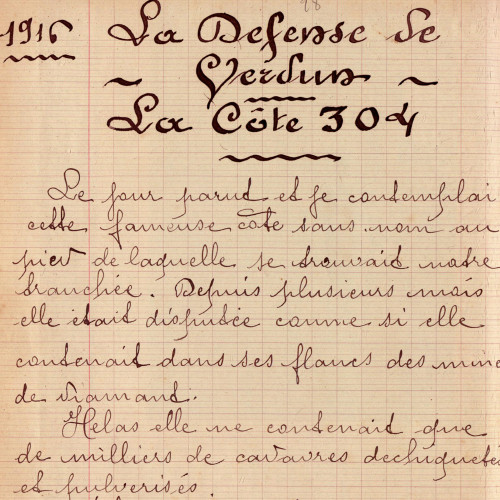 28
1916 La Defense de
~ Verdun ~
La Côte 304
Le jour parut et je contemplai
cette fameuse côte sans nom au
pied de laquelle se trouvait notre
tranchée. Depuis plusieurs mois
elle était disputée comme si elle
contenait dans ses flancs des mine
de diamand.
Helas elle ne contenait que
de milliers de cadavres dechiquete
et pulverisés.